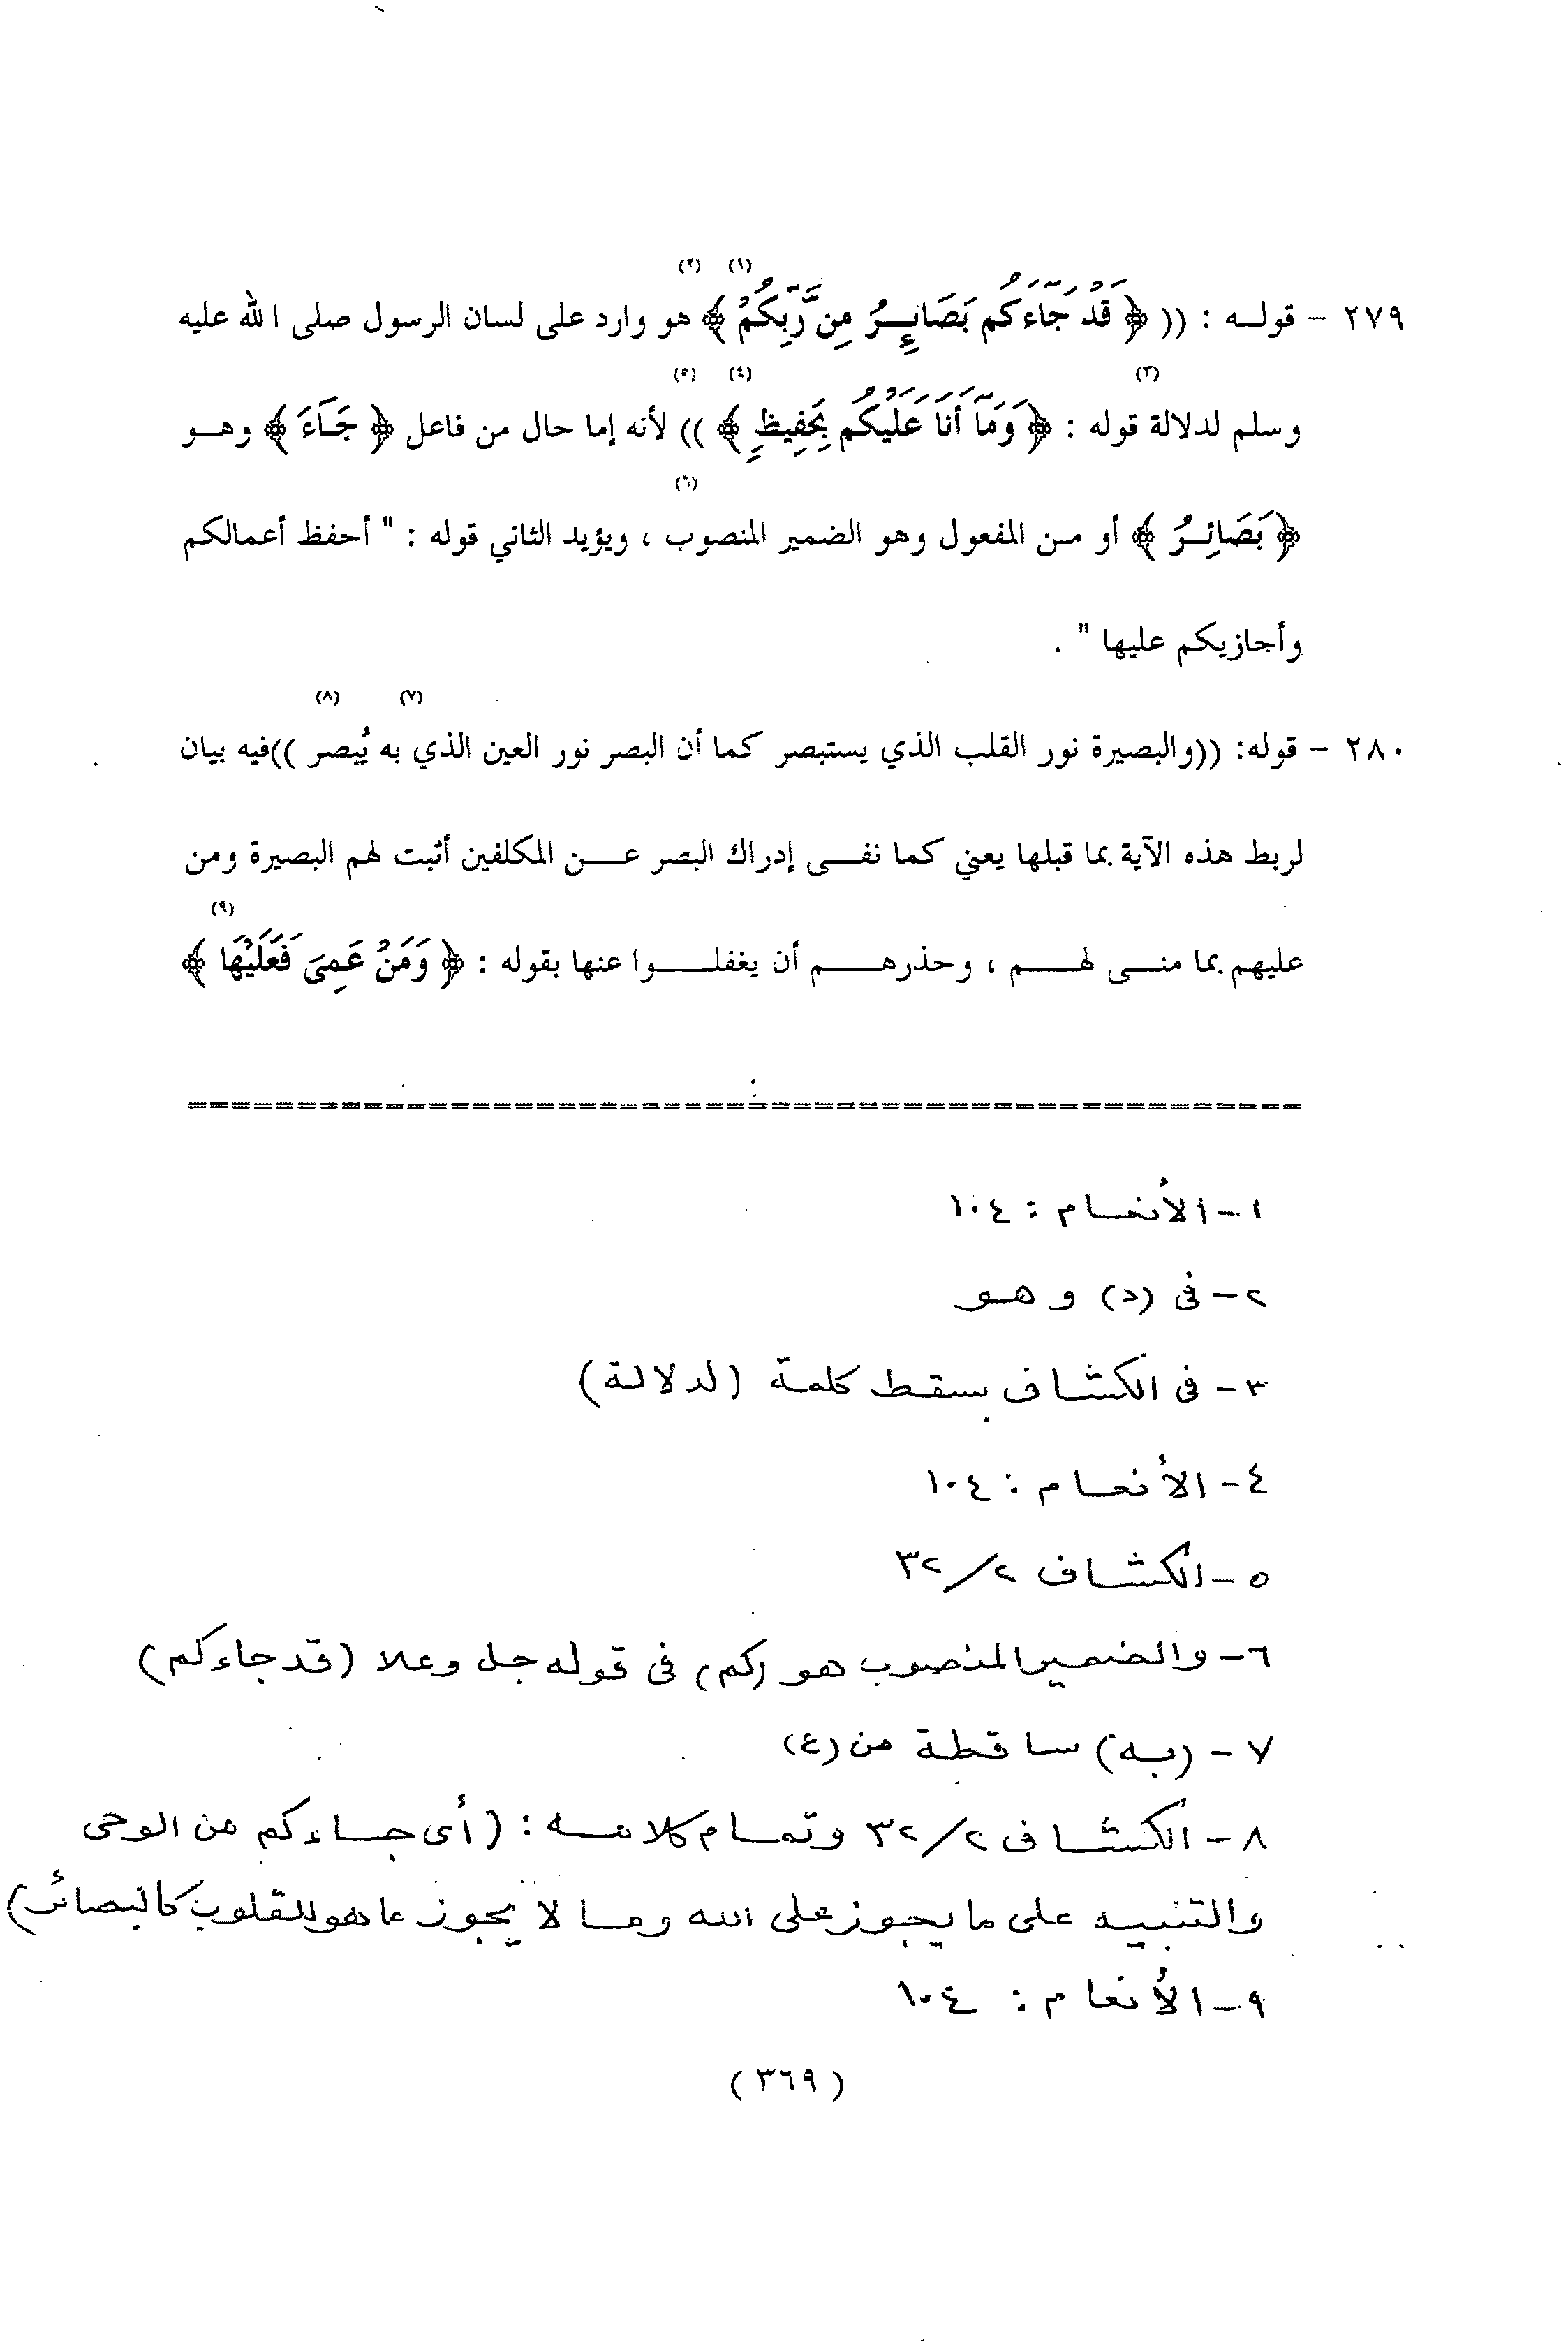 ٢٧٩ - قوله : (( ﴿ قَدْ جَاءَكُم بَصَائِرُ مِن رَّبِّكُمْ (١) ﴾ (٢) هو وارد على لسان الرسول صلى الله عليه
وسلم لدلالة (٣) قوله : ﴿ وَمَا أَنَا عَلَيْكُم بِحَفِيظٍ (٤) ﴾ )) (٥) لأنه إما حال من فاعل ﴿ جَاءَ ﴾ وهو
﴿ بَصَائِرُ ﴾ أو من المفعول وهو الضمير المنصوب (٦) ، ويؤيد الثاني قوله : " أحفظ أعمالكم
وأجازيكم عليها " .
٢٨٠ - قوله: ((والبصيرة نور القلب الذي يستبصر كما أن البصر نور العين الذي به (٧) يُبصر (٨) ))فيه بيان
لربط هذه الآية بما قبلها يعني كما نفى إدراك البصر عن المكلفين أثبت لهم البصيرة ومن
عليهم بما منى لهم ، وحذرهم أن يغفلوا عنها بقوله : ﴿ وَمَنْ عَمِيَ فَعَلَيْهَا (٩) ﴾
١- الأنعام : ١٠٤
٢- فى (د) وهو
٣- فى الكشاف بسقط كلمة (لدلالة)
٤- الأنعام : ١٠٤
٥- الكشاف ٢/٣٢
٦- والضمير المنصوب هو (كم) فى قوله جل وعلا (قد جاءكم)
٧- (به) ساقطة من (ع)
٨- الكشاف ٢/٣٢ وتمام كلامه : (أى جاءكم من الوحى
والتنبيه على ما يجوز على الله وما لا يجوز ما هو للقلوب كالبصائر)
٩- الأنعام : ١٠٤
(٣٦٩)